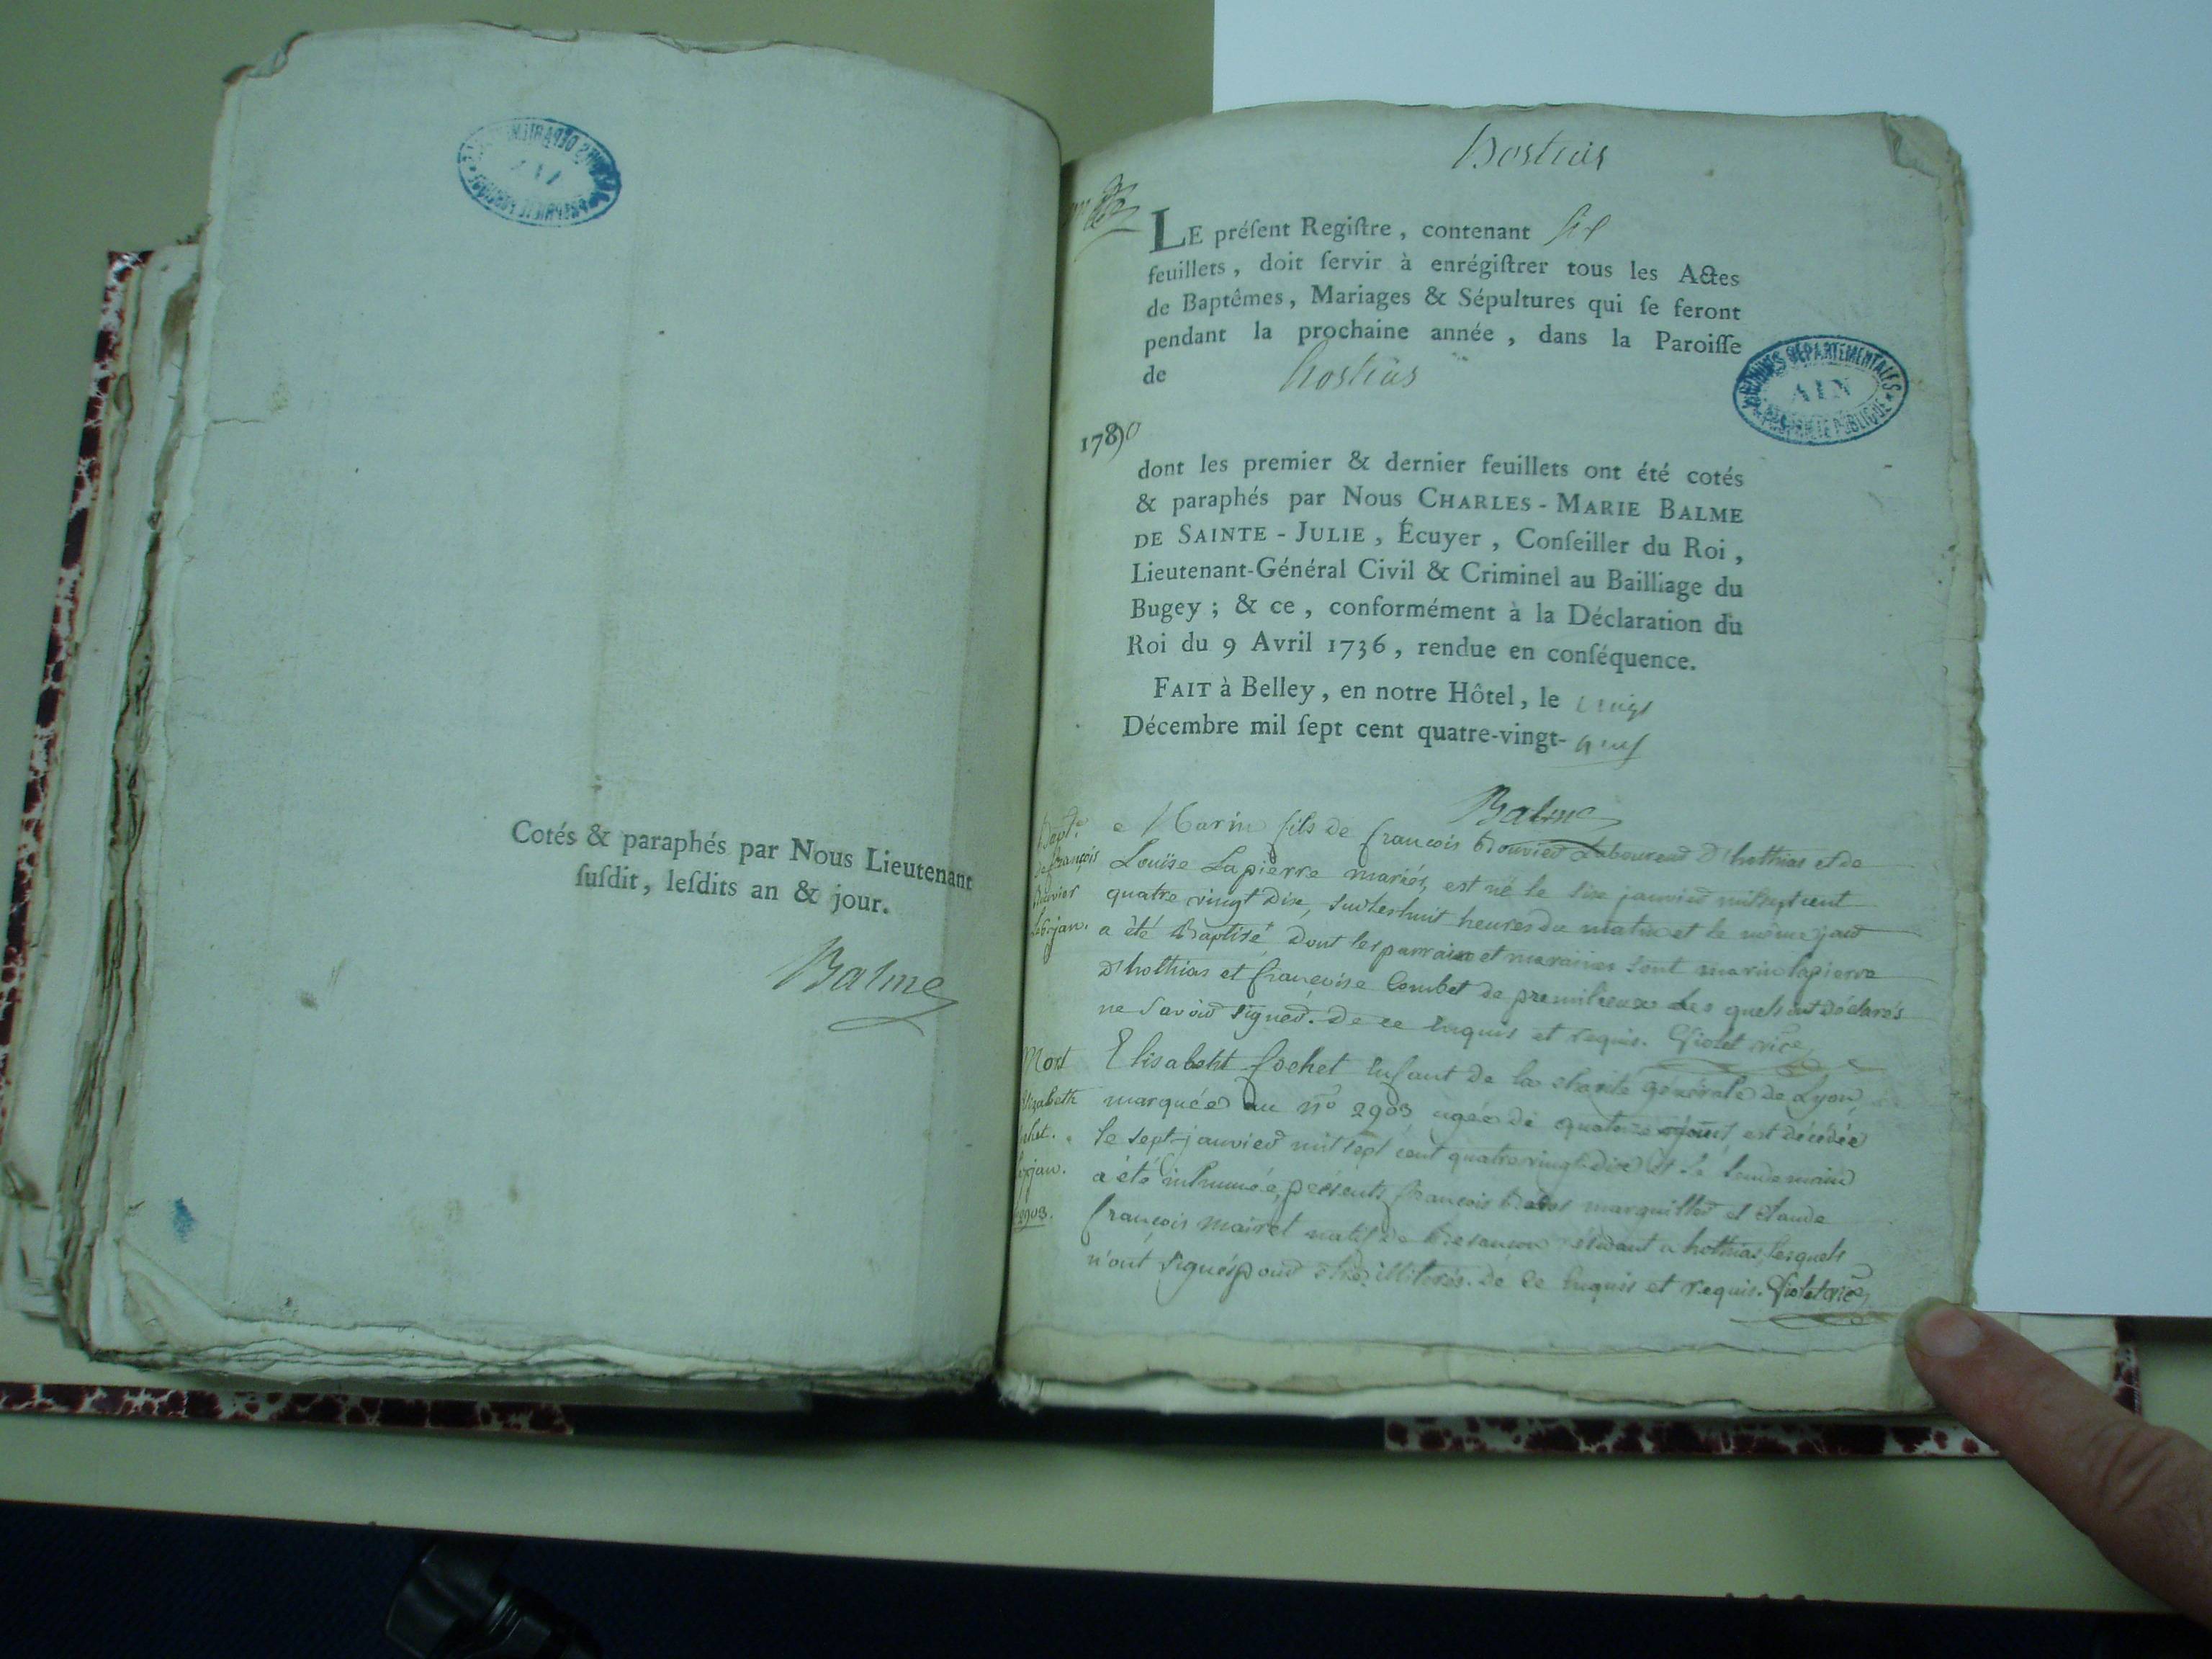 Cotés & paraphés par Nous Lieutenant
ſuſdit, leſdits an & jour.
Balme
hostias
LE préſent Regiſtre, contenant six
feuillets, doit ſervir à enrégiſtrer tous les Actes
de Baptêmes, Mariages & Sépultures qui ſe feront
pendant la prochaine année, dans la Paroiſſe
de hostias
1790
ARCHIVES DÉPARTEMENTALES
AIN
PROPRIÉTÉ PUBLIQUE
dont les premier & dernier feuillets ont été cotés
& paraphés par Nous CHARLES-MARIE BALME
DE SAINTE-JULIE, Écuyer, Conſeiller du Roi,
Lieutenant-Général Civil & Criminel au Bailliage du
Bugey ; & ce, conformément à la Déclaration du
Roi du 9 Avril 1736, rendue en conſéquence.
FAIT à Belley, en notre Hôtel, le vingt
Décembre mil ſept cent quatre-vingt-neuf
Balme
Bapt.e
de françois
Bouvier
Le 6 jan.
Marin fils de francois Bouvier Laboureur D'hothias et de
Louïse Lapierre mariés, est né le six janvier mil sept cent
quatre vingt Dix, sur les huit heures du matin et le même jour
a été Baptisé Dont les parrain et maraine sont marin lapierre
D'hothias et françoise Combet de premilieux Les quels ont Déclarés
ne savoir signer. De ce enquis et requis. Violet vic.
Mort
Elizabeth
jan.
2903.
Elisabeht fochet Enfant de la charité générale de Lyon,
marquée au n° 2903 agée de quatorze jours est décédée
le sept janvier mil sept cent quatre vingt Dix et le lendemain
a été inhumée, présents françois marguillier et claude
françois mairet natif de Besançon résidant a hothias, lesquels
n'ont signés pour être illiterés. De ce enquis et requis. Violet vic.